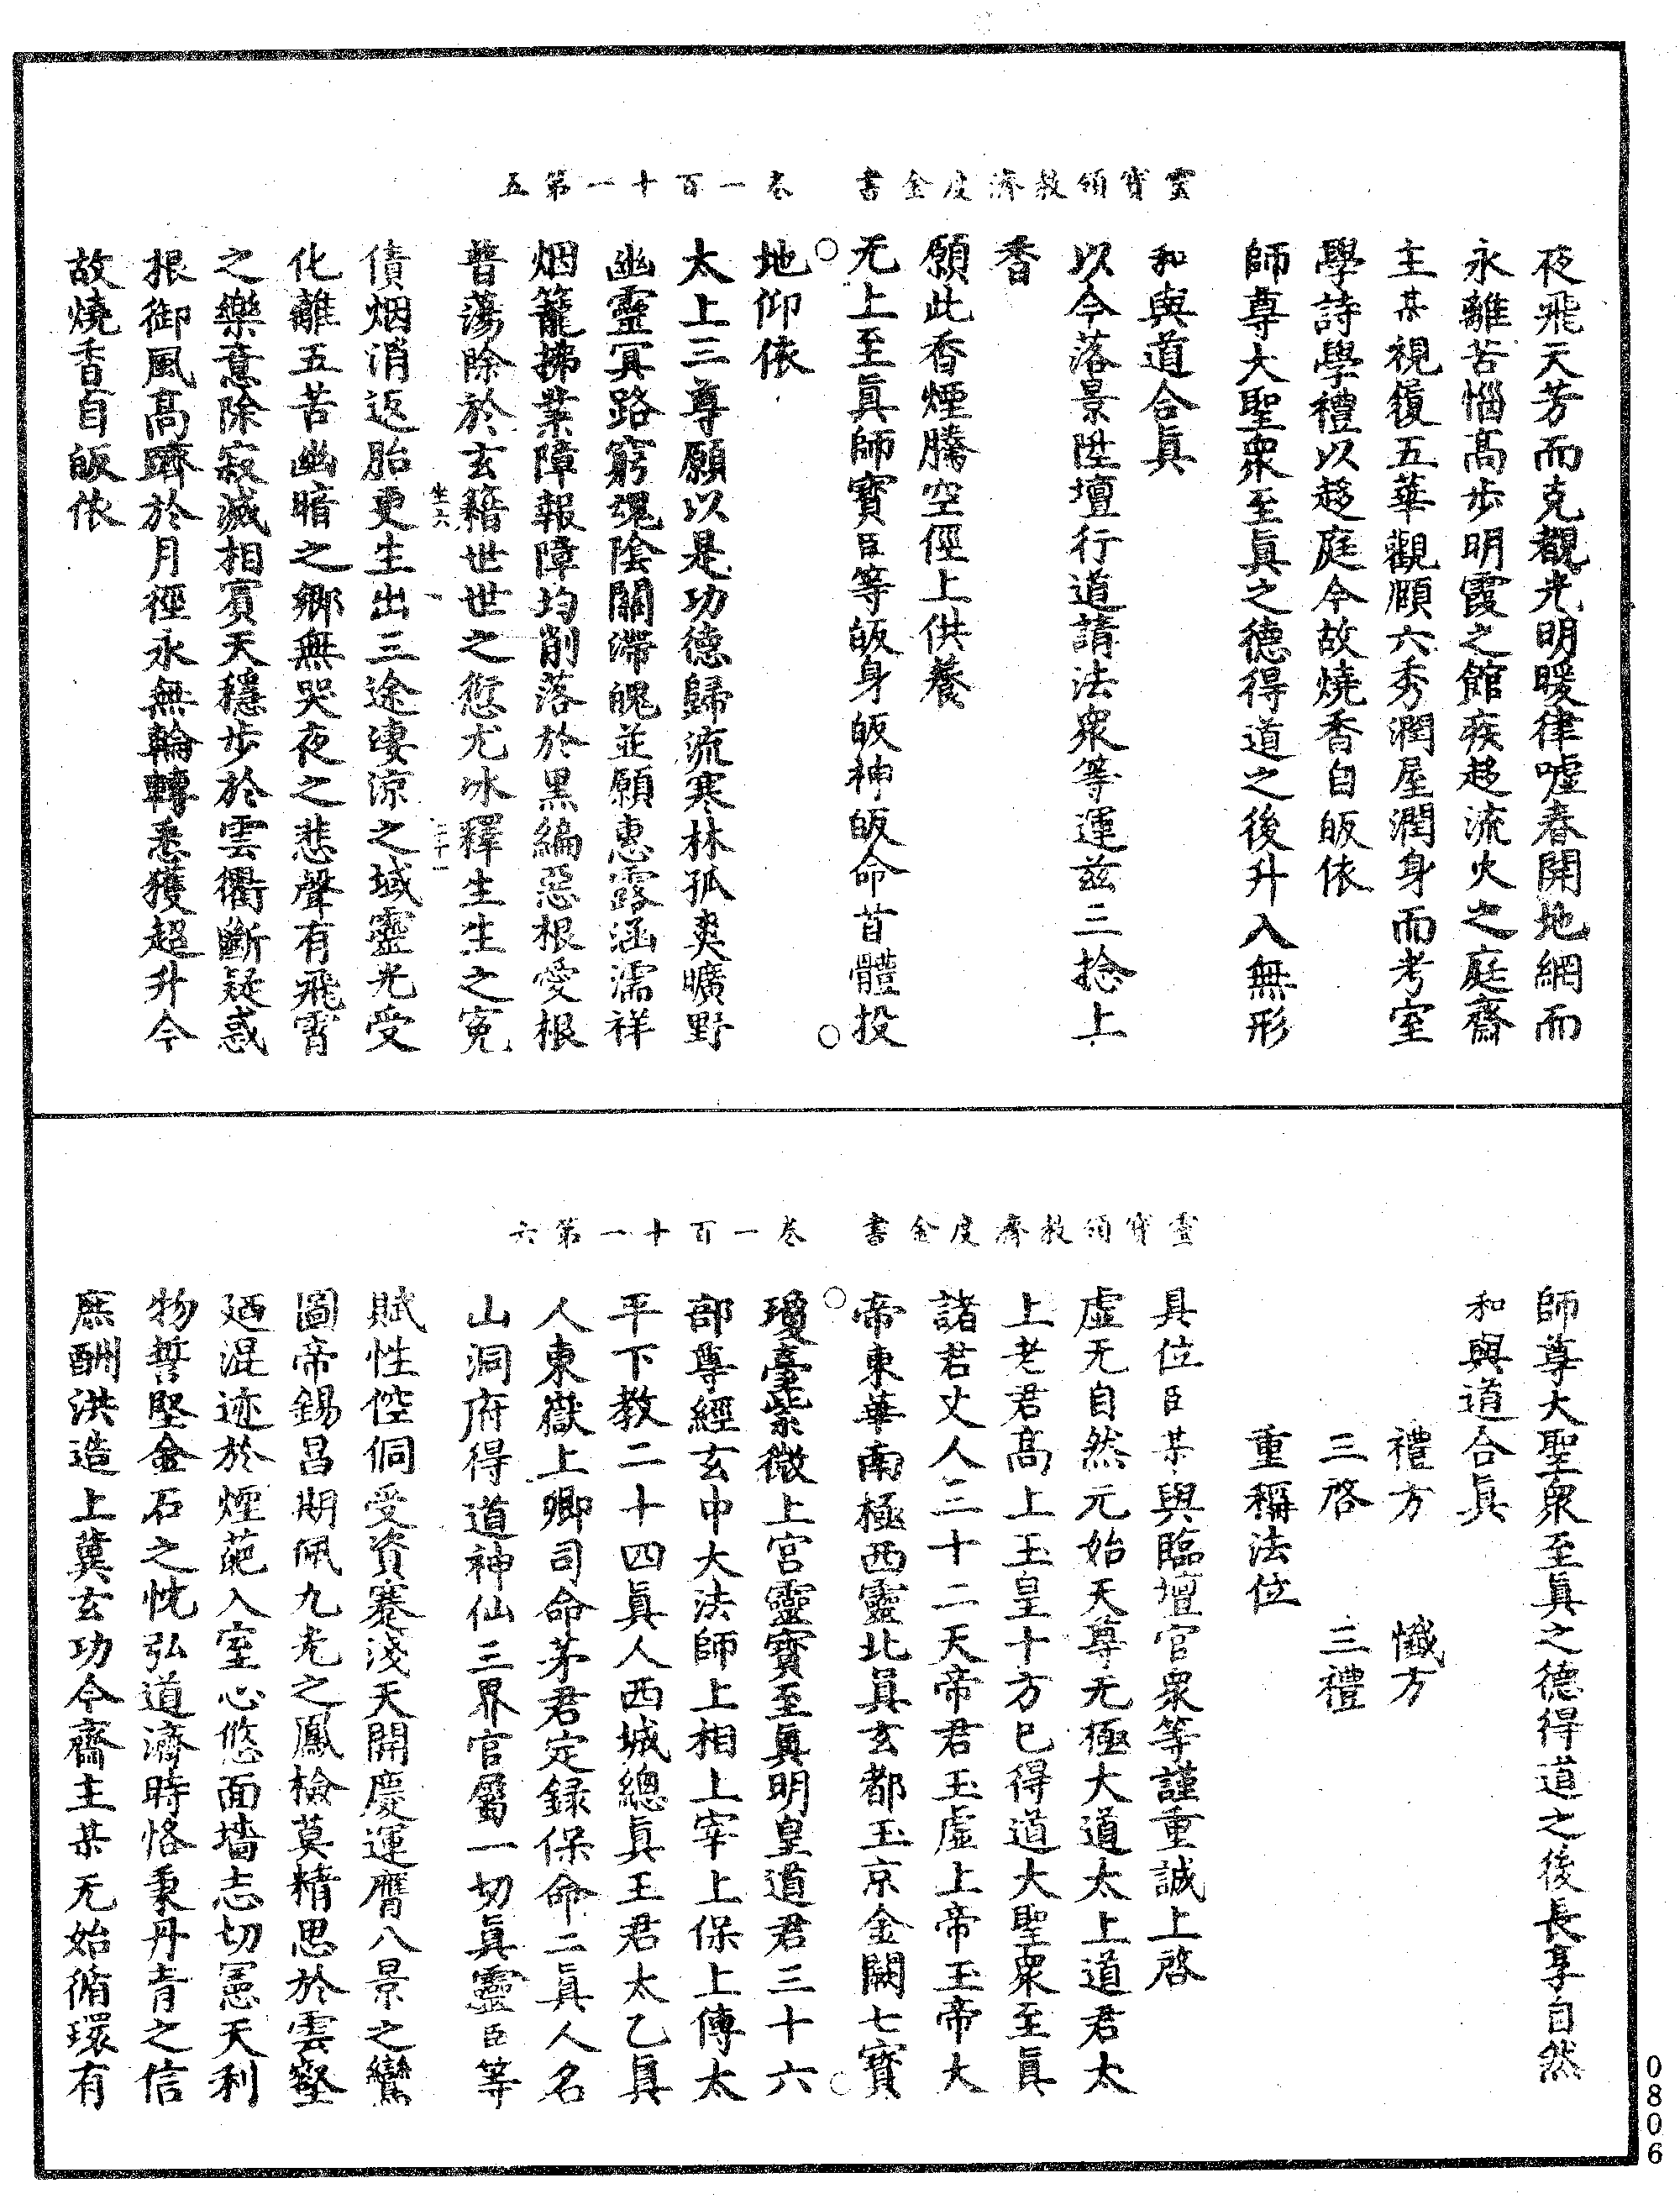 靈寶領教濟度金書　卷一百十一第五
夜飛天芳而克觀光明暖律噓春開地網而
永離苦惱高步明霞之館疾趍流火之庭齋
主某視履五華觀頤六秀潤屋潤身而考室
學詩學禮以趍庭今故燒香自皈依
師尊大聖衆至眞之德得道之後升入無形
和與道合眞
以今落景陞壇行道請法衆等運茲三捻上
香
願此香煙騰空徑上供養
无上至眞師寶臣等皈身皈神皈命首體投
地仰依
太上三尊願以是功德歸流寒林孤爽曠野
幽靈冥路窮魂陰關滯魄並願惠露涵濡祥
烟籠拂業障報障均削落於黑編惡根愛根
普蕩除於玄籍世世之愆尤冰釋生生之寃
債烟消返胎更生出三途淒涼之域靈光受
化離五苦幽暗之鄉無哭夜之悲聲有飛霄
之樂意除寂滅相賓天穩步於雲衢斷疑惑
根御風高躋於月徑永無輪轉悉獲超升今
故燒香自皈依
靈寶領教濟度金書　卷一百十一第六
師尊大聖衆至眞之德得道之後長享自然
和與道合眞
禮方　懺方
三啓　三禮
重稱法位
具位臣某與臨壇官衆等謹重誠上啓
虛无自然元始天尊无極大道太上道君太
上老君高上玉皇十方已得道大聖衆至眞
諸君丈人三十二天帝君玉虛上帝玉帝大
帝東華南極西靈北眞玄都玉京金闕七寶
瓊臺紫微上宮靈寶至眞明皇道君三十六
部尊經玄中大法師上相上宰上保上傅太
平下教二十四眞人西城總眞王君太乙眞
人東嶽上卿司命茅君定録保命二眞人名
山洞府得道神仙三界官屬一切眞靈臣等
賦性倥侗受資蹇淺天開慶運膺八景之鸞
圖帝錫昌期佩九光之鳳檢莫精思於雲壑
廼混迹於煙葩入室心悠面墻志切憲天利
物誓堅金石之忱弘道濟時恪秉丹青之信
庶酬洪造上冀玄功今齋主某无始循環有
0806